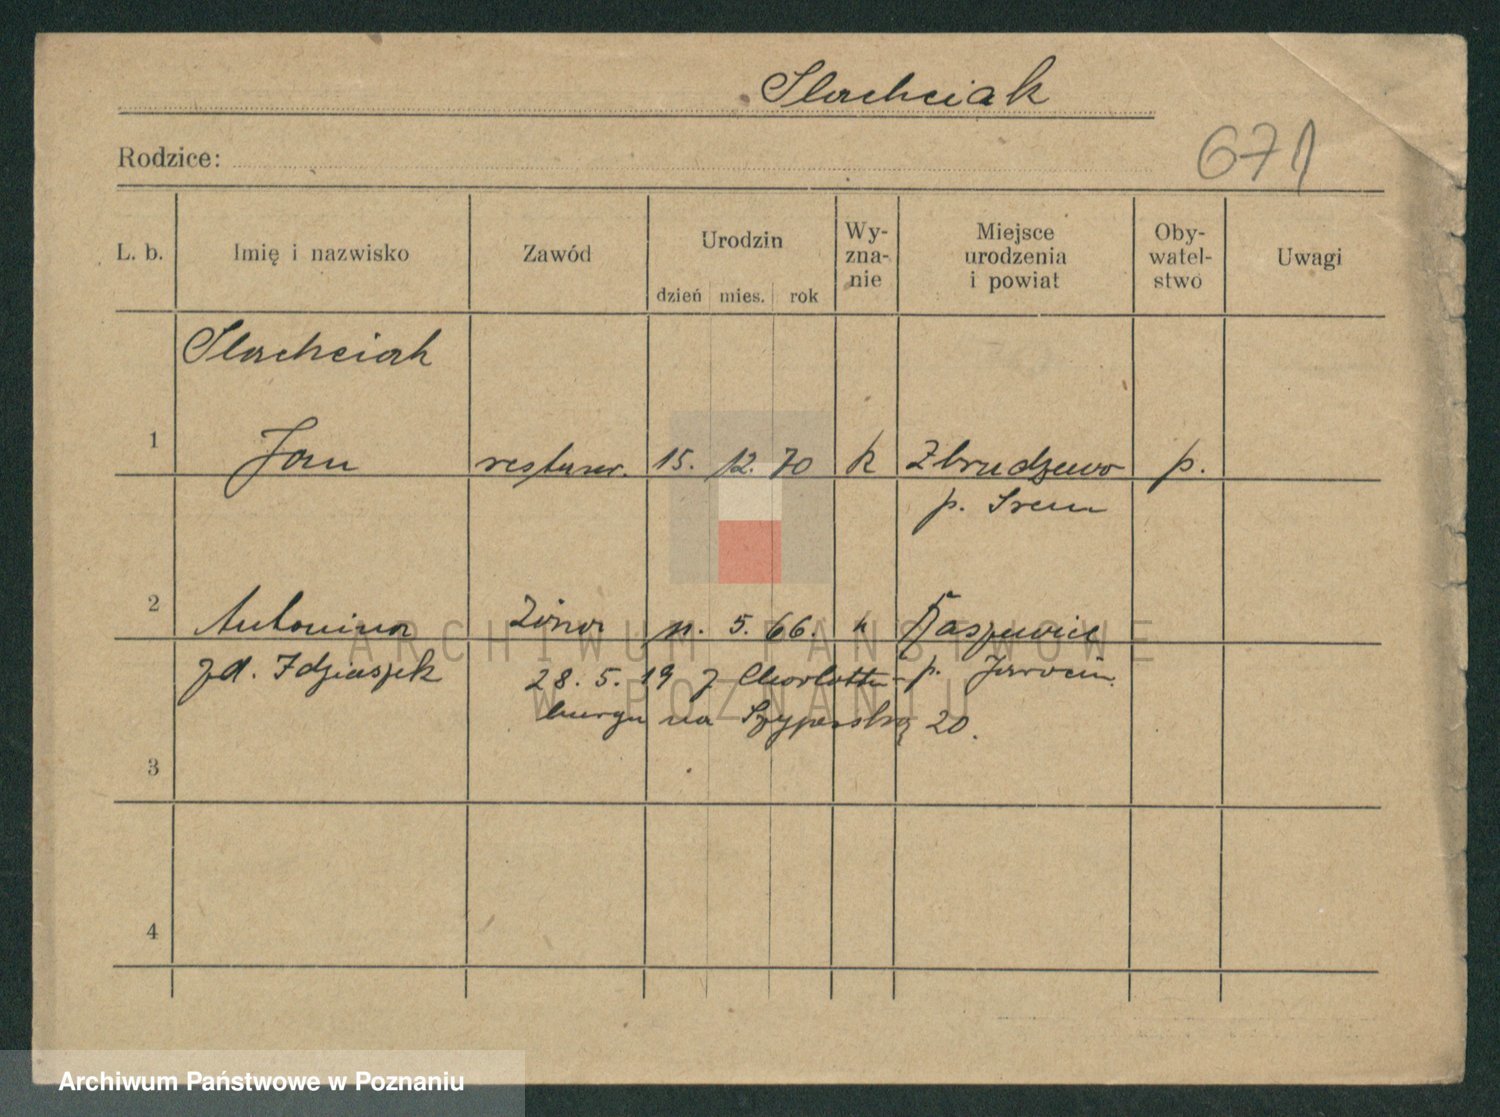 Slachciak
Rodzice:
671
L. b. Imię i nazwisko Zawód Urodzin dzień mies. rok Wy-zna-nie Miejsce urodzenia i powiat Oby-watel-stwo Uwagi
Slachciak
1 Jan restaur. 15. 12. 70 k Zbrudzewo p.
p. Srem
2 Antonina żona 11. 5. 66. k Raszewice
zd. Idziaszek p. Jarocin.
28. 5. 19 z Charlotten-
burgu na Szyperską 20.
3
4
ARCHIWUM PAŃSTWOWE
W POZNANIU
Archiwum Państwowe w Poznaniu